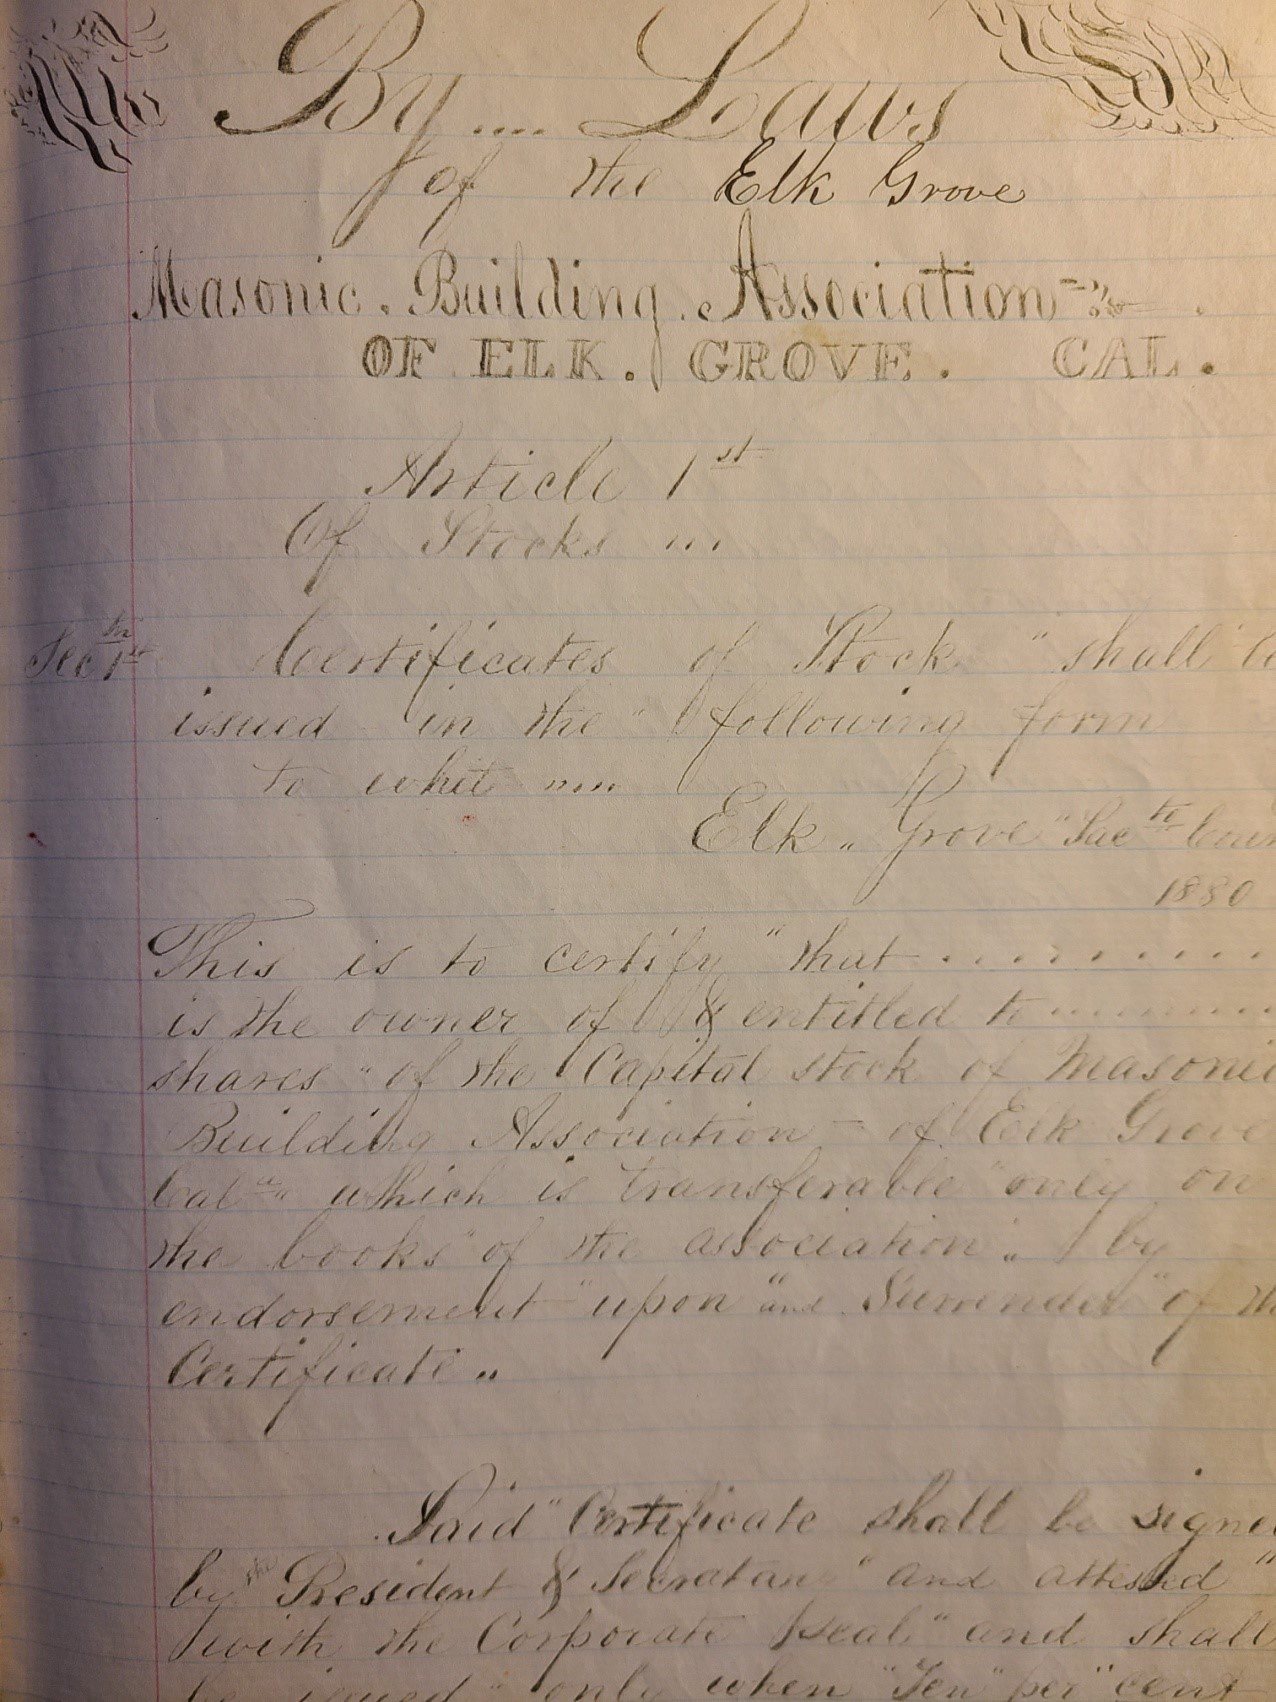 By .... Laws
of the Elk Grove
Masonic . Building . Association
OF ELK . GROVE . CAL .
Article 1st
Of Stocks "'
Sec 1st Certificates of Stock " shall
issued in the " following form
to whit """
Elk " Grove " Sac to
1880
This is to certify " that . . . . . . . . .
is the owner of & entitled to ............
shares " of the Capital stock of Masonic
Building Association - of Elk Grove
Cal a " which is transferable " only on
the books " of the association " by
endorsement " upon " and Surrender " of
Certificate "
Said " Certificate shall be
by the President & " and attested "
with the Corporate seal " and shall
only when " Ten " per " cent